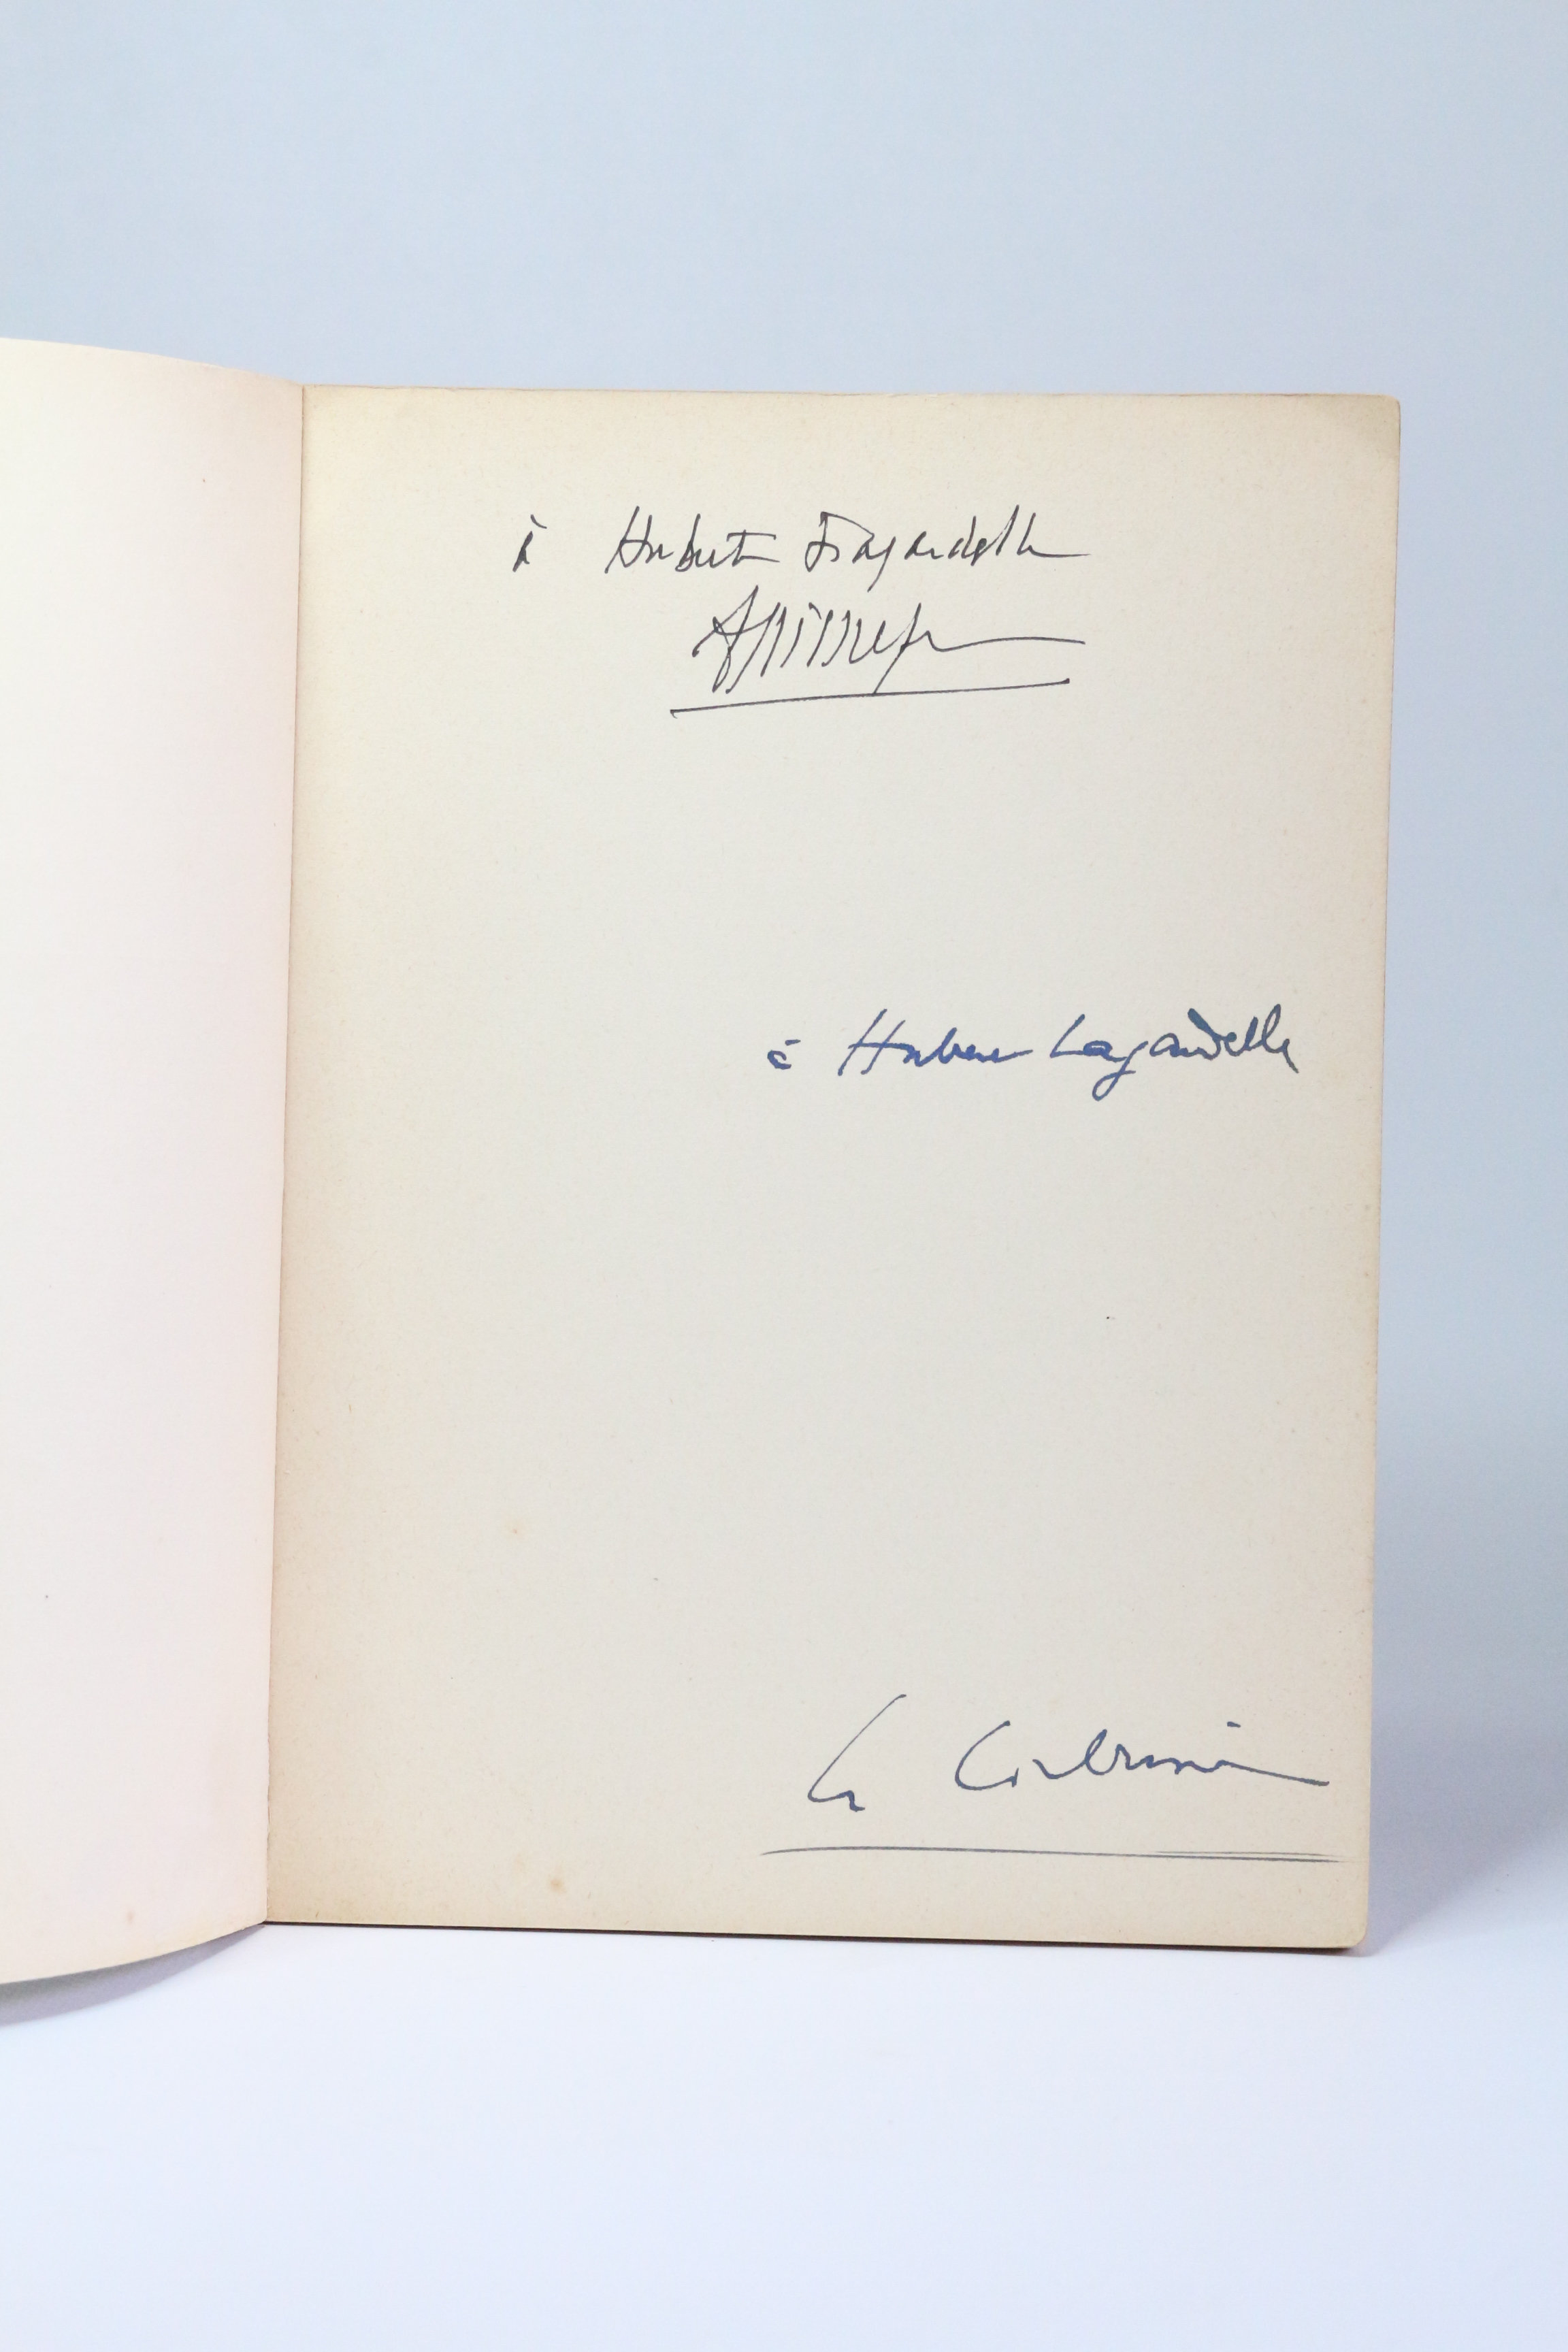 à Hubert Lagardelle
à Hubert Lagardelle
Le Corbusier